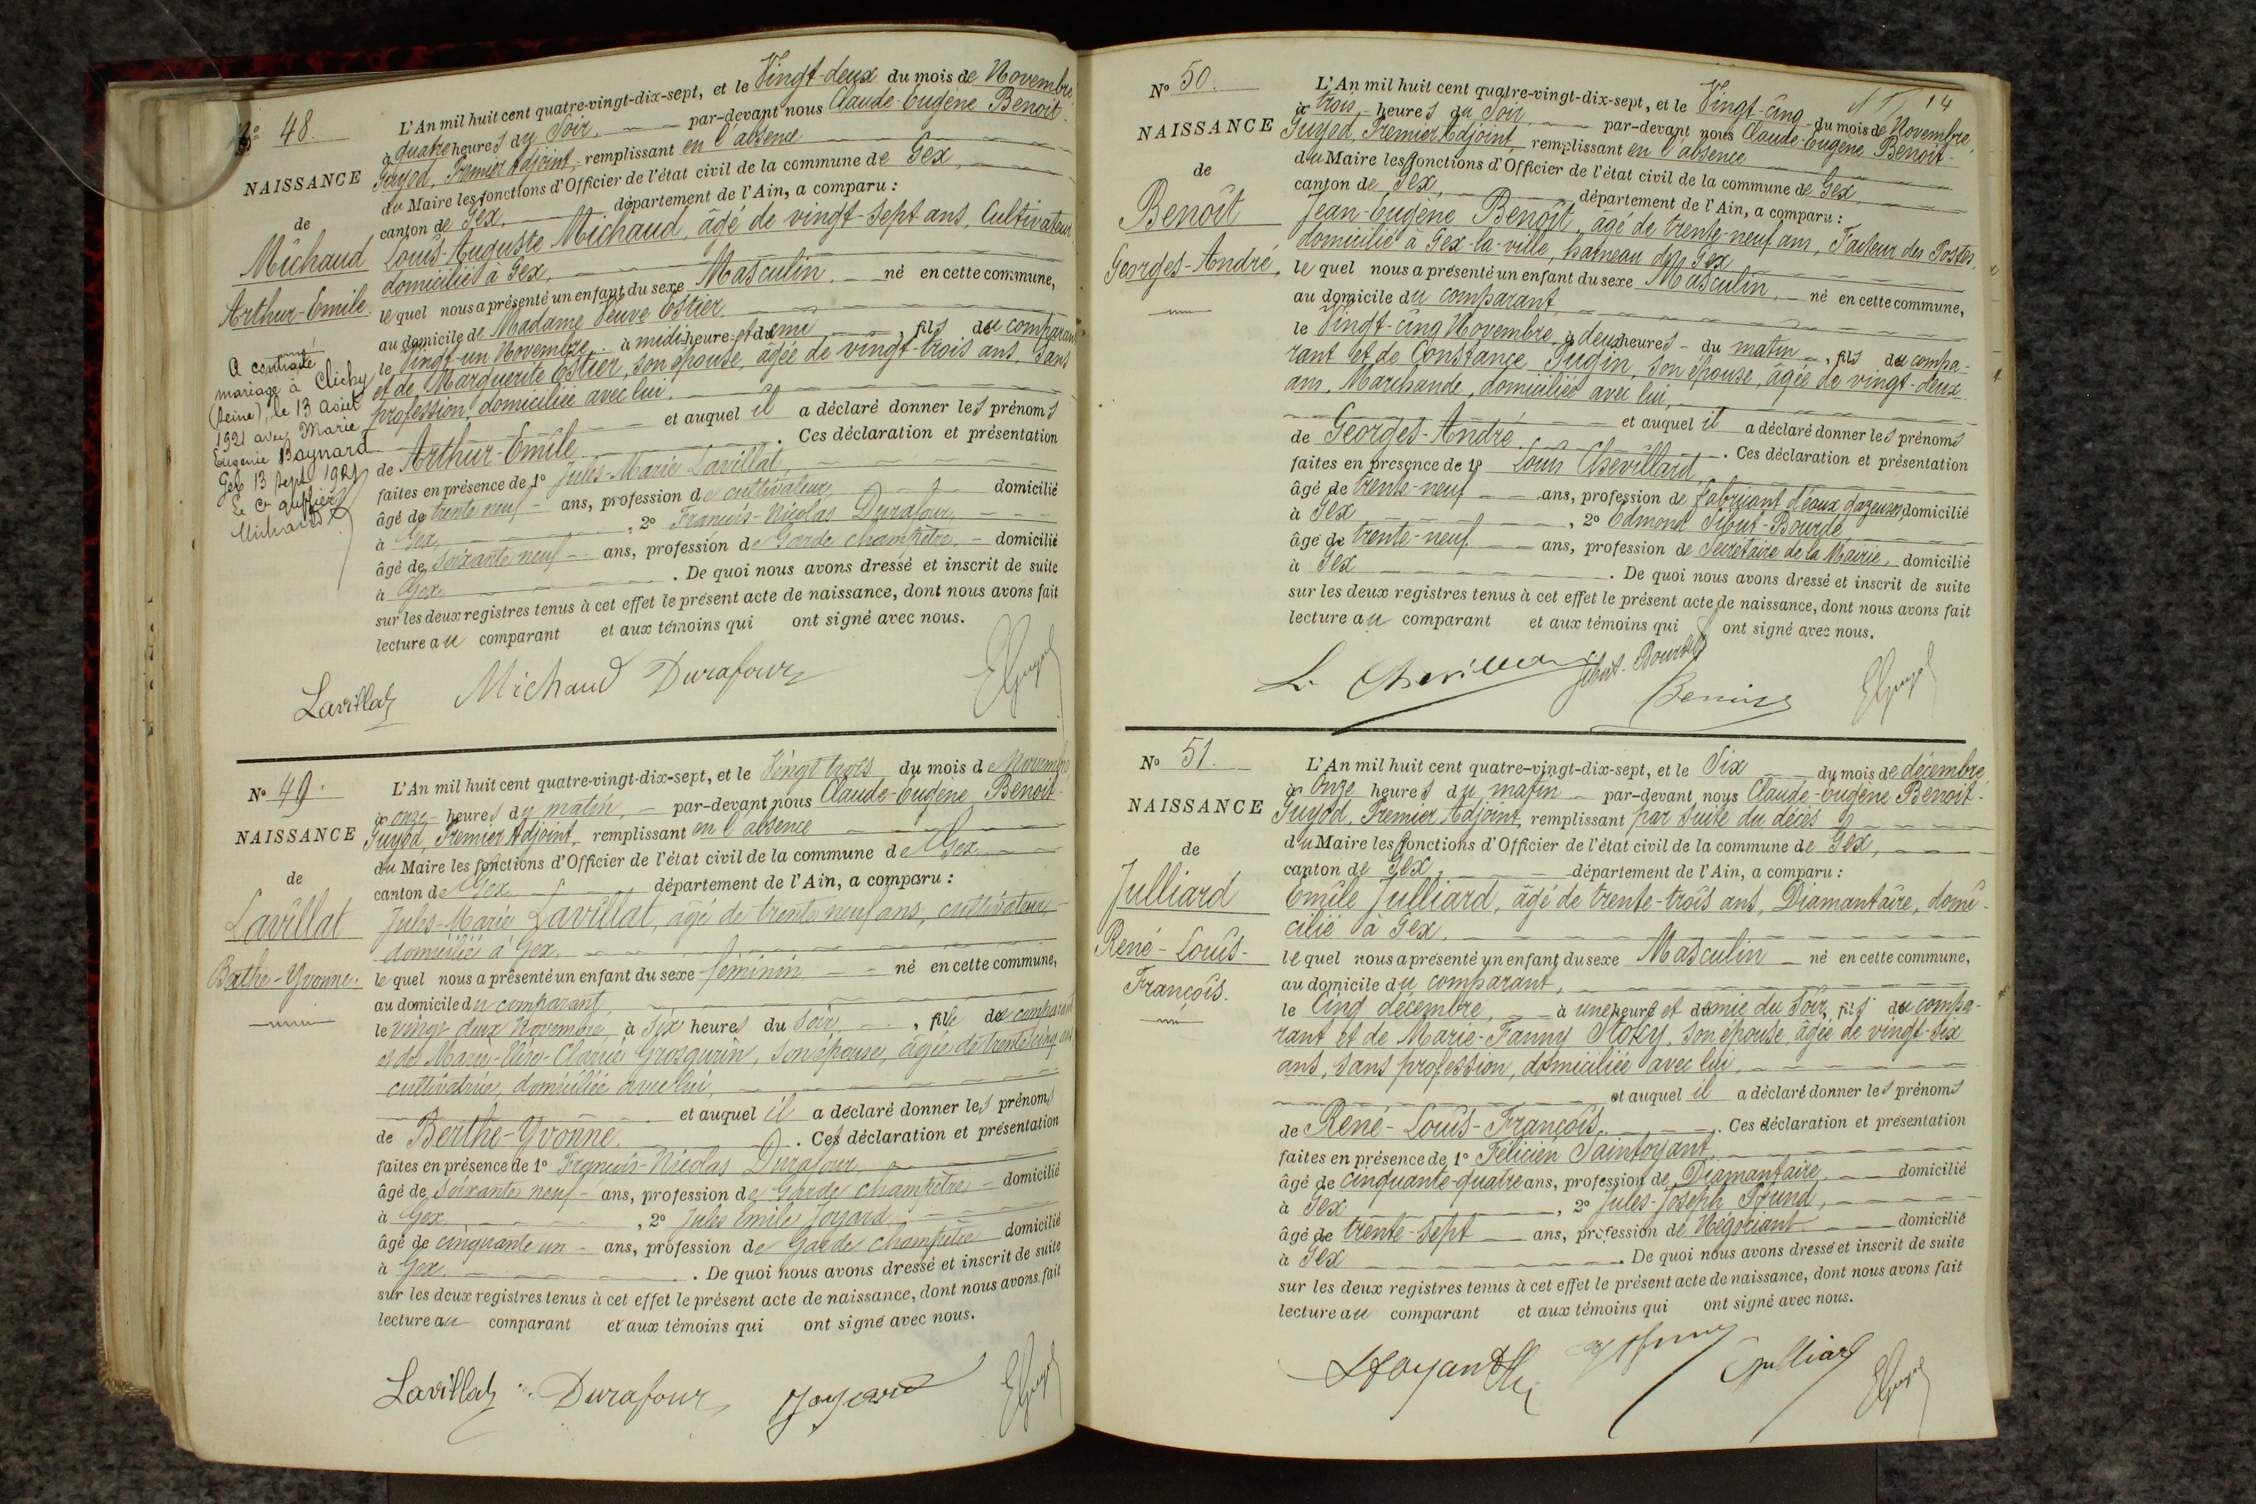 Nº 48.
NAISSANCE
de
Michaud
Arthur-Emile.
A contracté
mariage à Clichy
(Seine), le 13 août
1921 avec Marie
Eugénie Baynard
Gex 13 Sept. 1921
Le Cis greffier
Michaud
L'An mil huit cent quatre-vingt-dix-sept, et le Vingt-deux du mois de Novembre,
à quatre heures du Soir, par-devant nous Claude-Eugène Benoit-
Guyod, Premier Adjoint, remplissant en l'absence
du Maire les fonctions d'Officier de l'état civil de la commune de Gex,
canton de Gex, département de l'Ain, a comparu :
Louis-Auguste Michaud, âgé de vingt-sept ans, Cultivateur,
domicilié à Gex,
lequel nous a présenté un enfant du sexe Masculin, né en cette commune,
au domicile de Madame Veuve Estier
le Vingt-un Novembre à midi heure et demi, fils du comparant
et de Marguerite Estier, son épouse, âgée de vingt-trois ans, sans
profession, domiciliée avec lui,
et auquel il a déclaré donner les prénoms
de Arthur-Emile. Ces déclaration et présentation
faites en présence de 1º Jules-Marie Lavillat,
âgé de trente neuf ans, profession de cultivateur, domicilié
à Gex, 2º François-Nicolas Durafour,
âgé de soixante neuf ans, profession de Garde champêtre, domicilié
à Gex. De quoi nous avons dressé et inscrit de suite
sur les deux registres tenus à cet effet le présent acte de naissance, dont nous avons fait
lecture au comparant et aux témoins qui ont signé avec nous.
Lavillat Michaud Durafour EGuyod
Nº 49.
NAISSANCE
de
Lavillat
Berthe-Yvonne.
L'An mil huit cent quatre-vingt-dix-sept, et le Vingt trois du mois de Novembre,
à onze heures du matin, par-devant nous Claude-Eugène Benoit-
Guyod, Premier Adjoint, remplissant en l'absence
du Maire les fonctions d'Officier de l'état civil de la commune de Gex
canton de Gex département de l'Ain, a comparu :
Jules-Marie Lavillat, âgé de trente neuf ans, cultivateur,
domicilié à Gex,
lequel nous a présenté un enfant du sexe féminin né en cette commune,
au domicile du comparant,
le vingt deux Novembre, à Six heures du soir, fille du comparant
et de Marie- Clarie Grosgurin, son épouse, âgée de trente cinq ans
cultivatrice, domiciliée avec lui,
et auquel il a déclaré donner les prénoms
de Berthe-Yvonne. Ces déclaration et présentation
faites en présence de 1º François-Nicolas Durafour,
âgé de soixante neuf ans, profession de Garde champêtre domicilié
à Gex, 2º Jules Emile Joyard,
âgé de cinquante un ans, profession de Garde champêtre domicilié
à Gex. De quoi nous avons dressé et inscrit de suite
sur les deux registres tenus à cet effet le présent acte de naissance, dont nous avons fait
lecture au comparant et aux témoins qui ont signé avec nous.
Lavillat Durafour Joyard EGuyod
14
Nº 50.
NAISSANCE
de
Benoît
Georges-André.
L'An mil huit cent quatre-vingt-dix-sept, et le Vingt-cinq du mois de Novembre,
à trois heures du Soir, par-devant nous Claude-Eugène Benoit-
Guyod, Premier Adjoint, remplissant en l'absence
du Maire les fonctions d'Officier de l'état civil de la commune de Gex,
canton de Gex, département de l'Ain, a comparu :
Jean-Eugène Benoît, âgé de trente-neuf ans, Facteur des Postes,
domicilié à Gex-la-ville, hameau de Gex
lequel nous a présenté un enfant du sexe Masculin, né en cette commune,
au domicile du comparant,
le Vingt-cinq Novembre à deux heures du matin, fils du compa-
rant et de Constance Jugin, son épouse, âgée de vingt-deux
ans, Marchande, domiciliée avec lui,
et auquel il a déclaré donner les prénoms
de Georges-André. Ces déclaration et présentation
faites en présence de 1º Louis Chevillard,
âgé de trente-neuf ans, profession de fabricant d'eaux gazeuses, domicilié
à Gex, 2º Edmond Sibut-Bourde
âgé de trente-neuf ans, profession de Secrétaire de la Mairie, domicilié
à Gex. De quoi nous avons dressé et inscrit de suite
sur les deux registres tenus à cet effet le présent acte de naissance, dont nous avons fait
lecture au comparant et aux témoins qui ont signé avec nous.
L. Chevillard Sibut-Bourde Benoit EGuyod
Nº 51.
NAISSANCE
de
Julliard
René-Louis-
François.
L'An mil huit cent quatre-vingt-dix-sept, et le Six du mois de décembre,
à Onze heures du matin par-devant nous Claude-Eugène Benoit-
Guyod, Premier Adjoint, remplissant par suite du décès
du Maire les fonctions d'Officier de l'état civil de la commune de Gex,
canton de Gex, département de l'Ain, a comparu :
Emile Julliard, âgé de trente-trois ans, Diamantaire, domi-
cilié à Gex,
lequel nous a présenté un enfant du sexe Masculin né en cette commune,
au domicile du comparant,
le Cinq décembre, à une heure et demie du Soir, fils du compa-
rant et de Marie-Fanny Stoky, son épouse, âgée de vingt-six
ans, sans profession, domiciliée avec lui,
et auquel il a déclaré donner les prénoms
de René-Louis-François. Ces déclaration et présentation
faites en présence de 1º Félicien Saintoyant,
âgé de cinquante-quatre ans, profession de Diamantaire, domicilié
à Gex, 2º Jules-Joseph Grund,
âgé de trente-sept ans, profession de Négociant domicilié
à Gex. De quoi nous avons dressé et inscrit de suite
sur les deux registres tenus à cet effet le présent acte de naissance, dont nous avons fait
lecture au comparant et aux témoins qui ont signé avec nous.
Julliard EGuyod